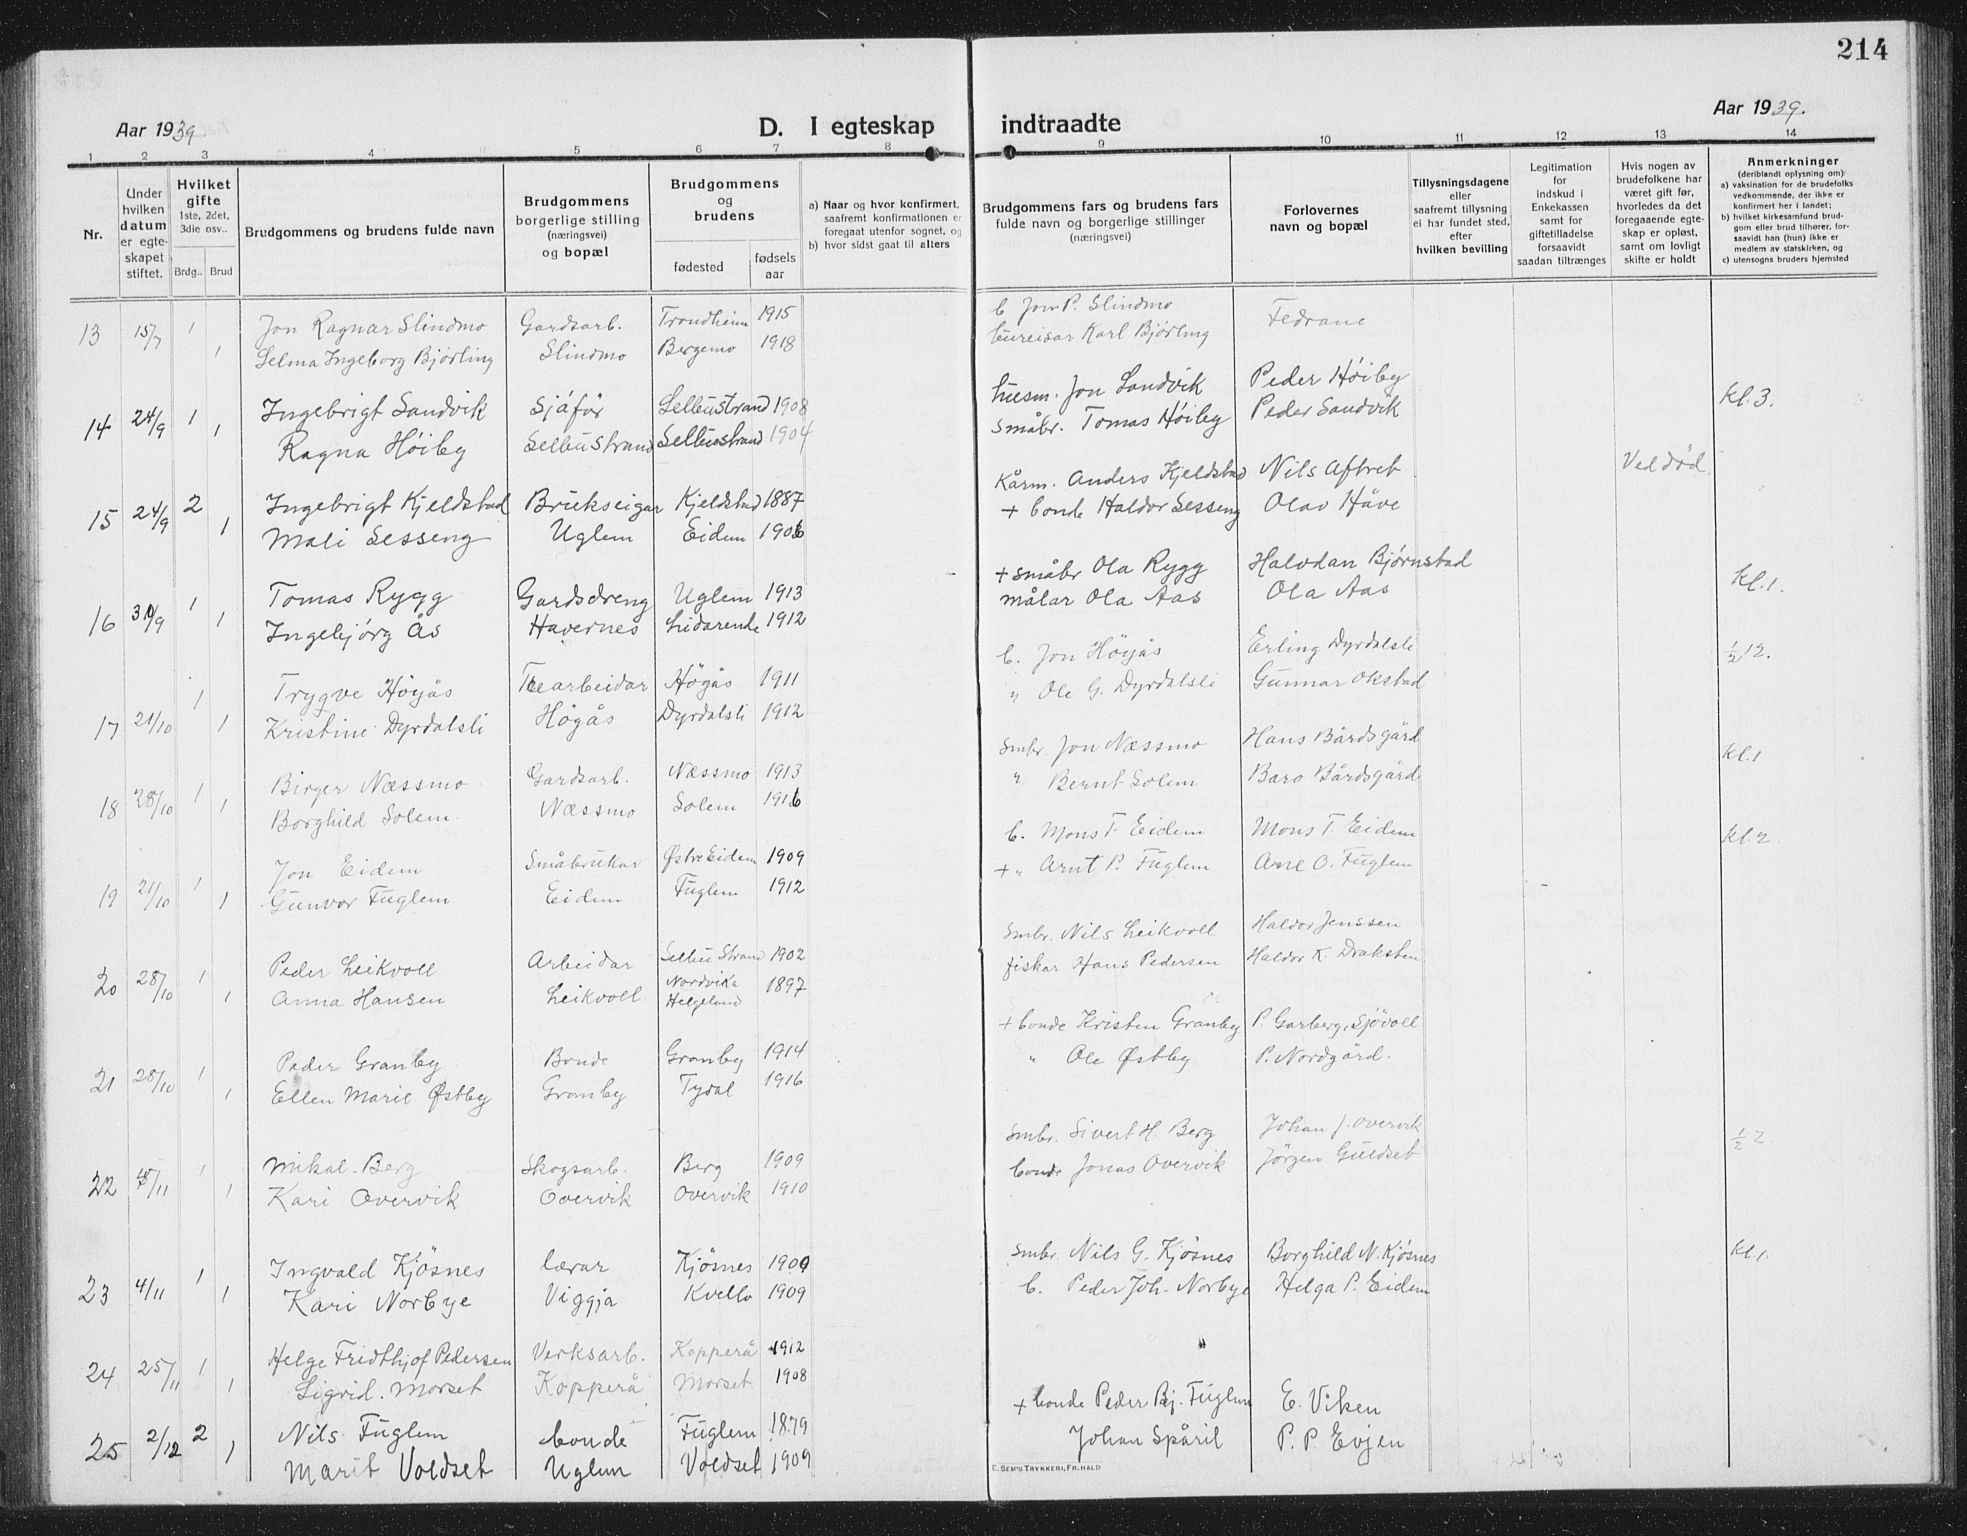 214
Aar 1939. D. I egteskap indtraadte Aar 1939.
1 2 3 4 5 6 7 8 9 10 11 12 13 14
Nr.
Under hvilken datum er egteskapet stiftet.
Hvilket gifte 1ste, 2det, 3die osv.. Brdg.. Brud
Brudgommens og brudens fulde navn
Brudgommens borgerlige stilling (næringsvei) og bopæl
Brudgommens og brudens fødested fødsels aar
a) Naar og hvor konfirmert, saafremt konfirmationen er foregaat utenfor sognet, og
b) hvor sidst gaat til alters
Brudgommens fars og brudens fars fulde navn og borgerlige stillinger (næringsvei)
Forlovernes navn og bopæl
Tillysningsdagene eller saafremt tillysning ei har fundet sted, efter hvilken bevilling
Legitimation for indskud i Enkekassen samt for giftetilladelse forsaavidt saadan tiltrænges
Hvis nogen av brudefolkene har været gift før, hvorledes da det foregaaende egteskap er opløst, samt om lovligt skifte er holdt
Anmerkninger (deriblandt oplysning om):
a) vaksination for de brudefolks vedkommende, der ikke er konfirmert her i landet;
b) hvilket kirkesamfund brudgom eller brud tilhører, forsaavidt han (hun) ikke er medlem av statskirken, og
c) utensogns bruders hjemsted
13 15/7 1 Jon Ragnar Slindmo Gardsarb. Trondheim 1915 b Jon P. Slindmo Fedrane
1 Selma Ingeborg Bjørling Slindmo Bergemo 1918 bureisar Karl Bjørling
14 24/9 1 Ingebrigt Sandvik Sjåfør Selbustrand 1908 husm. Jon Sandvik Peder Høiby kl. 3.
1 Ragna Høiby Selbustrand Selbustrand 1904 Småbr. Tomas Høiby Peder Sandvik
15 24/9 2 Ingebrigt Kjeldstad Brukseigar Kjeldstad 1887 Kårm. Anders Kjeldstad Nils Aftret Ved død.
1 Mali Sesseng Uglem Eidem 1906 + bonde Haldor Sesseng Olav Håve
16 30/9 1 Tomas Rygg Gardsdreng Uglem 1913 + småbr Ola Rygg Halvdan Bjørnstad kl. 1.
1 Ingebjørg Ås Havernes Lidarende 1912 målar Ola Aas Ola Aas
17 21/10 1 Trygve Högås Högås 1911 b. Jon Högås Erling Dyrdalsli ½ 12.
1 Kristine Dyrdalsli Högås Dyrdalsli 1912 " Ole G. Dyrdalsli Gunnar Okstad
18 28/10 1 Birger Næssmo Gardsarb. Næssmo 1913 Smbr. Jon Næssmo Hans Bårdsgård kl. 1
1 Borghild Solem. Næssmo Solem 1916 " Bernt Solem Baro Bårdsgård
19 21/10 1 Jon Eidem Småbrukar Østre Eidem 1909 b. Mons T. Eidem Mons T. Eidem kl 2
1 Gunvor Fuglem Eidem Fuglem 1912 + " Arnt P. Fuglem Arne O. Fuglem
20 28/10 1 Peder Leikvoll Arbeidar Selbu Strand 1902 Smbr. Nils Leikvoll Haldor Jenssen
1 Anna Hansen Leikvoll Nordvika Helgeland 1897 fiskar Hans Pedersen Haldor K. Draksten
21 28/10 1 Peder Granby Bonde Granby 1914 + bonde Kristen Granby P. Garberg, Sjövoll
1 Ellen Marie Østby Granby Tydal 1916 " Ole Østby P. Nordgård.
22 /11 1 Mikal Berg Skogsarb. Berg 1909 Smbr. Sivert H. Berg Johan J. Overvik ½ 2
1 Kari Overvik Overvik Overvik 1910 bonde Jonas Overvik Jörgen Guldset
23 4/11 1 Ingvald Kjösnes lærar Kjösnes 1900 Smbr. Nils G. Kjösnes Borghild N. Kjösnes kl. 1.
1 Kari Norbye Viggja Kvello 1909 b. Peder Joh. Norbye Helga P. Eidem
24 25/11 1 Helge Fridthjof Pedersen Verksarb. Kopperå 1912 "
1 Sigrid. Morset Kopperå Morset 1908
25 2/12 2 Nils Fuglem bonde Fuglem 1879 + bonde Peder Bj. Fuglem E. Viken
1 Marit Voldset Uglem Voldset 1909 Johan Spåril P. P. Evjen
E. SEM'S TRYKKERI, FR.HALD